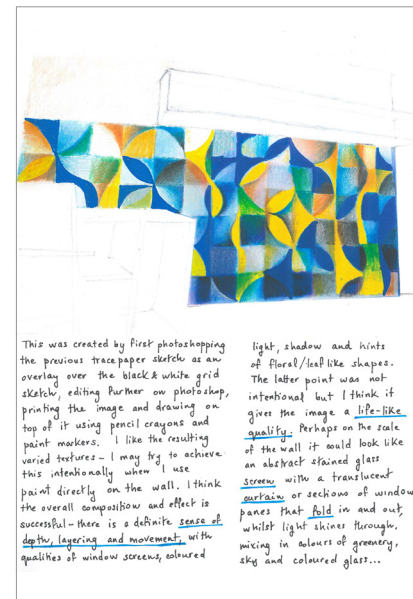 This was created by first photoshopping
the previous trace paper sketch as an
overlay over the black & white grid
sketch, editing further on photoshop,
printing the image and drawing on
top of it using pencil crayons and
paint markers. I like the resulting
varied textures - I may try to achieve
this intentionally when I use
paint directly on the wall. I think
the overall composition and effect is
successful - there is a definite sense of
depth, layering and movement, with
qualities of window screens, coloured
light, shadow and hints
of floral/leaf like shapes.
The latter point was not
intentional but I think it
gives the image a life-like
quality. Perhaps on the scale
of the wall it could look like
an abstract stained glass
screen with a translucent
curtain or sections of window
panes that fold in and out,
whilst light shines through,
mixing in colours of greenery,
sky and coloured glass...